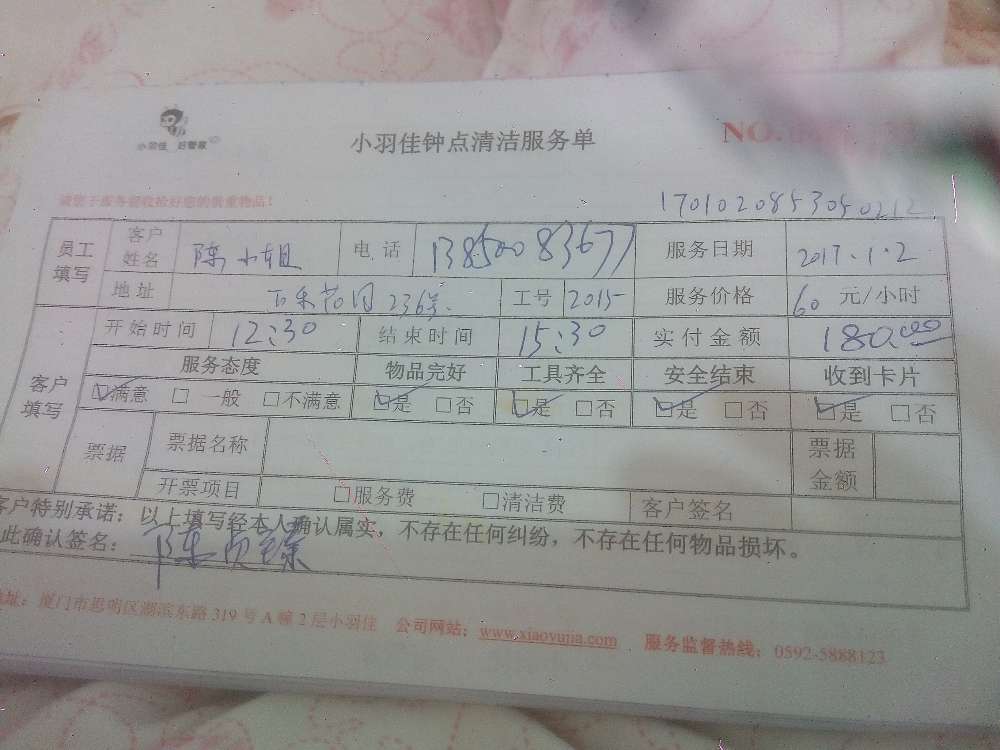 小羽佳 好管家
小羽佳钟点清洁服务单
NO.
请您于服务前收拾好您的贵重物品!
1701020853050212
员工填写 客户姓名 陈小姐 电话 13850083677 服务日期 2017.1.2
地址 236号 工号 2015 服务价格 60 元/小时
客户填写 开始时间 12:30 结束时间 15:30 实付金额 180.00
服务态度 物品完好 工具齐全 安全结束 收到卡片
☑满意 □一般 □不满意 ☑是 □否 ☑是 □否 ☑是 □否 ☑是 □否
票据 票据名称 票据金额
开票项目 □服务费 □清洁费 客户签名
客户特别承诺：以上填写经本人确认属实，不存在任何纠纷，不存在任何物品损坏。
此确认签名：陈
地址：厦门市思明区湖滨东路319号A幢2层小羽佳 公司网站：www.xiaoyujia.com 服务监督热线：0592-5888123